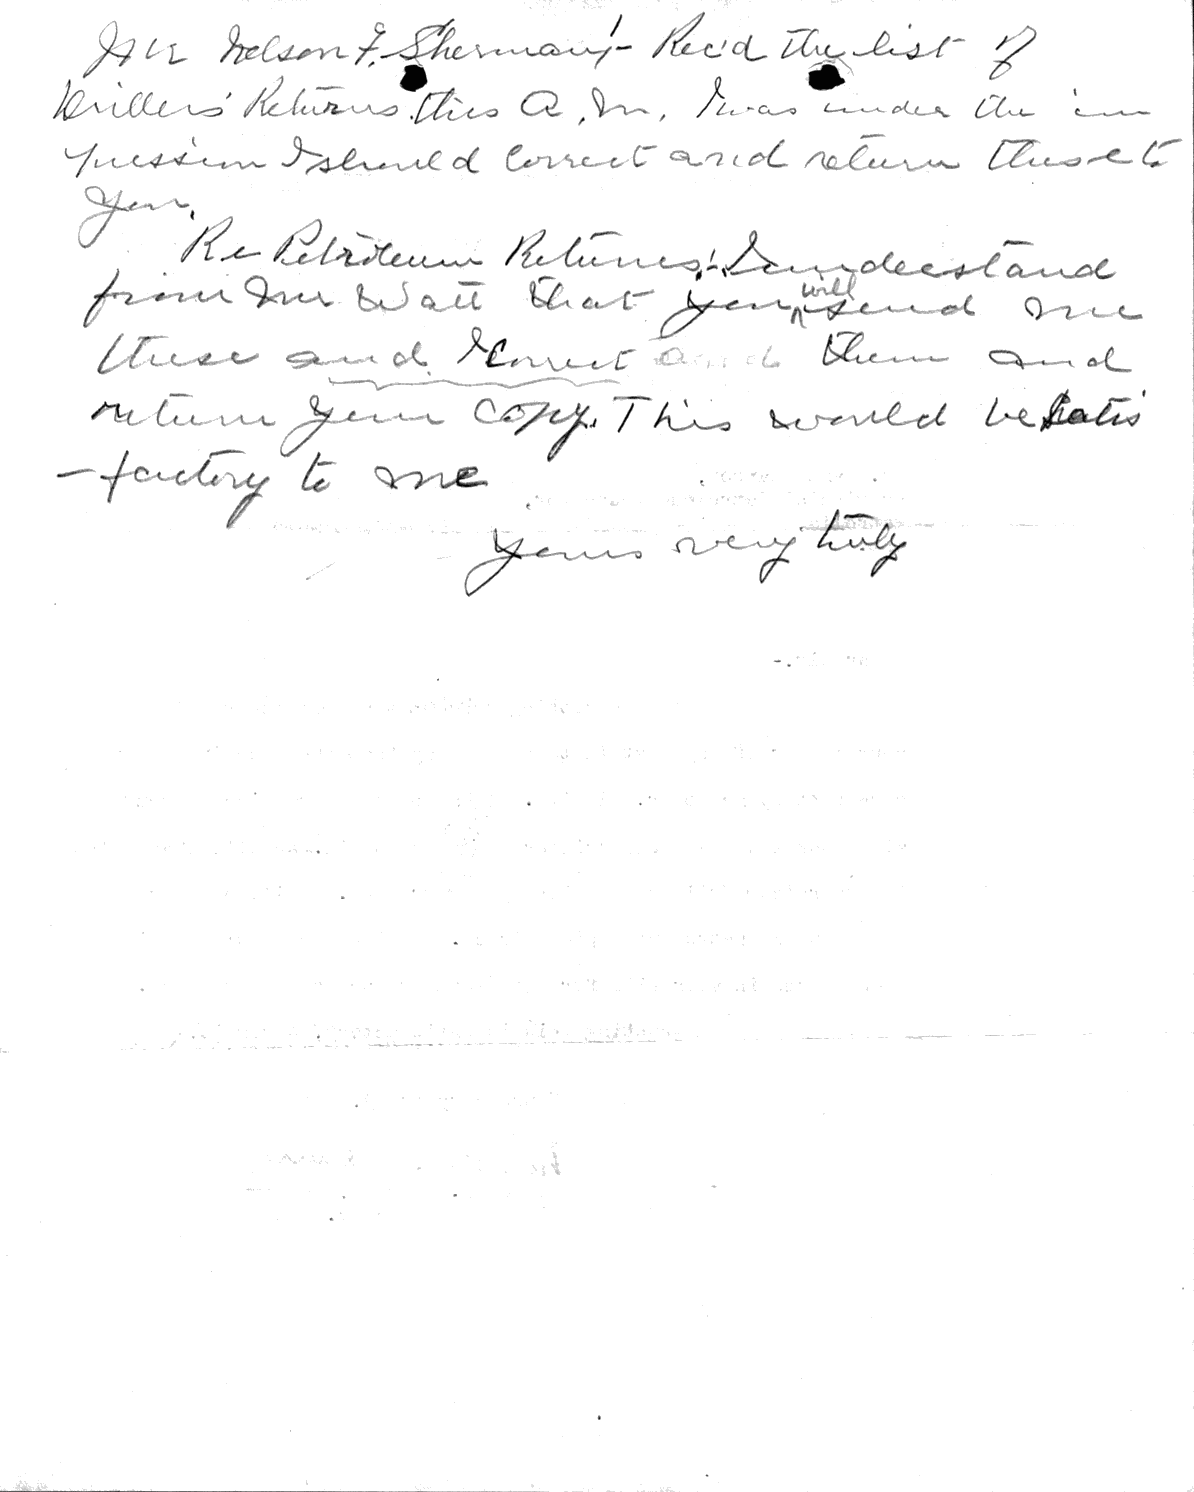 Mr Nelson F. Sherman!- Rec'd the list of
Drillers' Returns this A.M. I was under the im
pression I should correct and return these to
you.
Re Petroleum Returns!- I understand
from Mr Watt that you will send me
these and I correct and them and
return your copy. This would be satis
-factory to me
Yours very truly